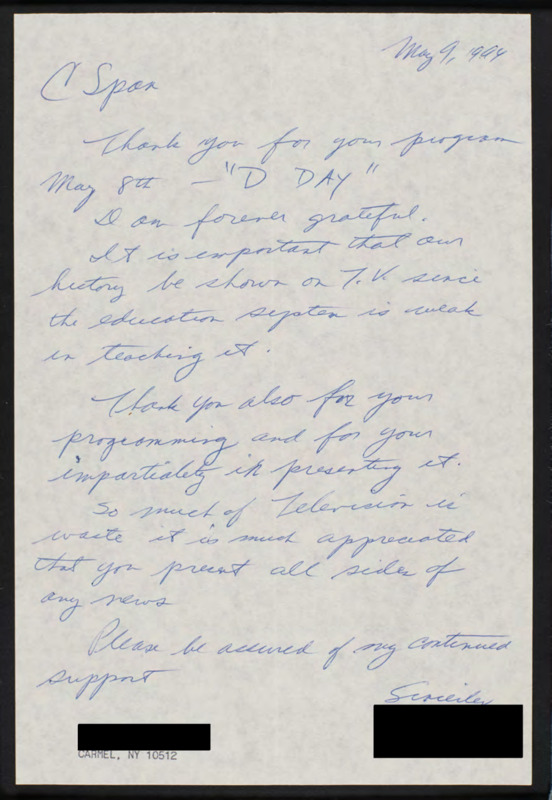 May 9, 1994
C Span
Thank you for your program
May 8th — "D DAY"
I am forever grateful.
It is important that our
history be shown on T.V. since
the education system is weak
in teaching it.
Thank you also for your
programming and for your
impartiality in presenting it.
So much of Television is
waste it is much appreciated
that you present all sides of
any news
Please be assured of my continued
support
Sincerely
CARMEL, NY 10512